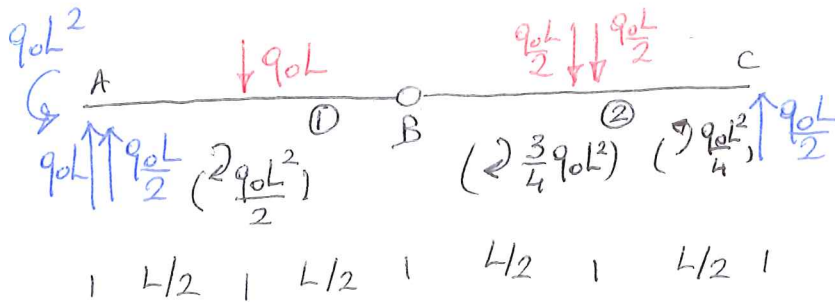 q₀L²
A
q₀L
q₀L/2
q₀L/2
C
①
B
②
q₀L
q₀L/2
(↷ q₀L²/2)
(↷ 3/4 q₀L²)
(↶ q₀L²/4)
q₀L/2
| L/2 | L/2 | L/2 | L/2 |